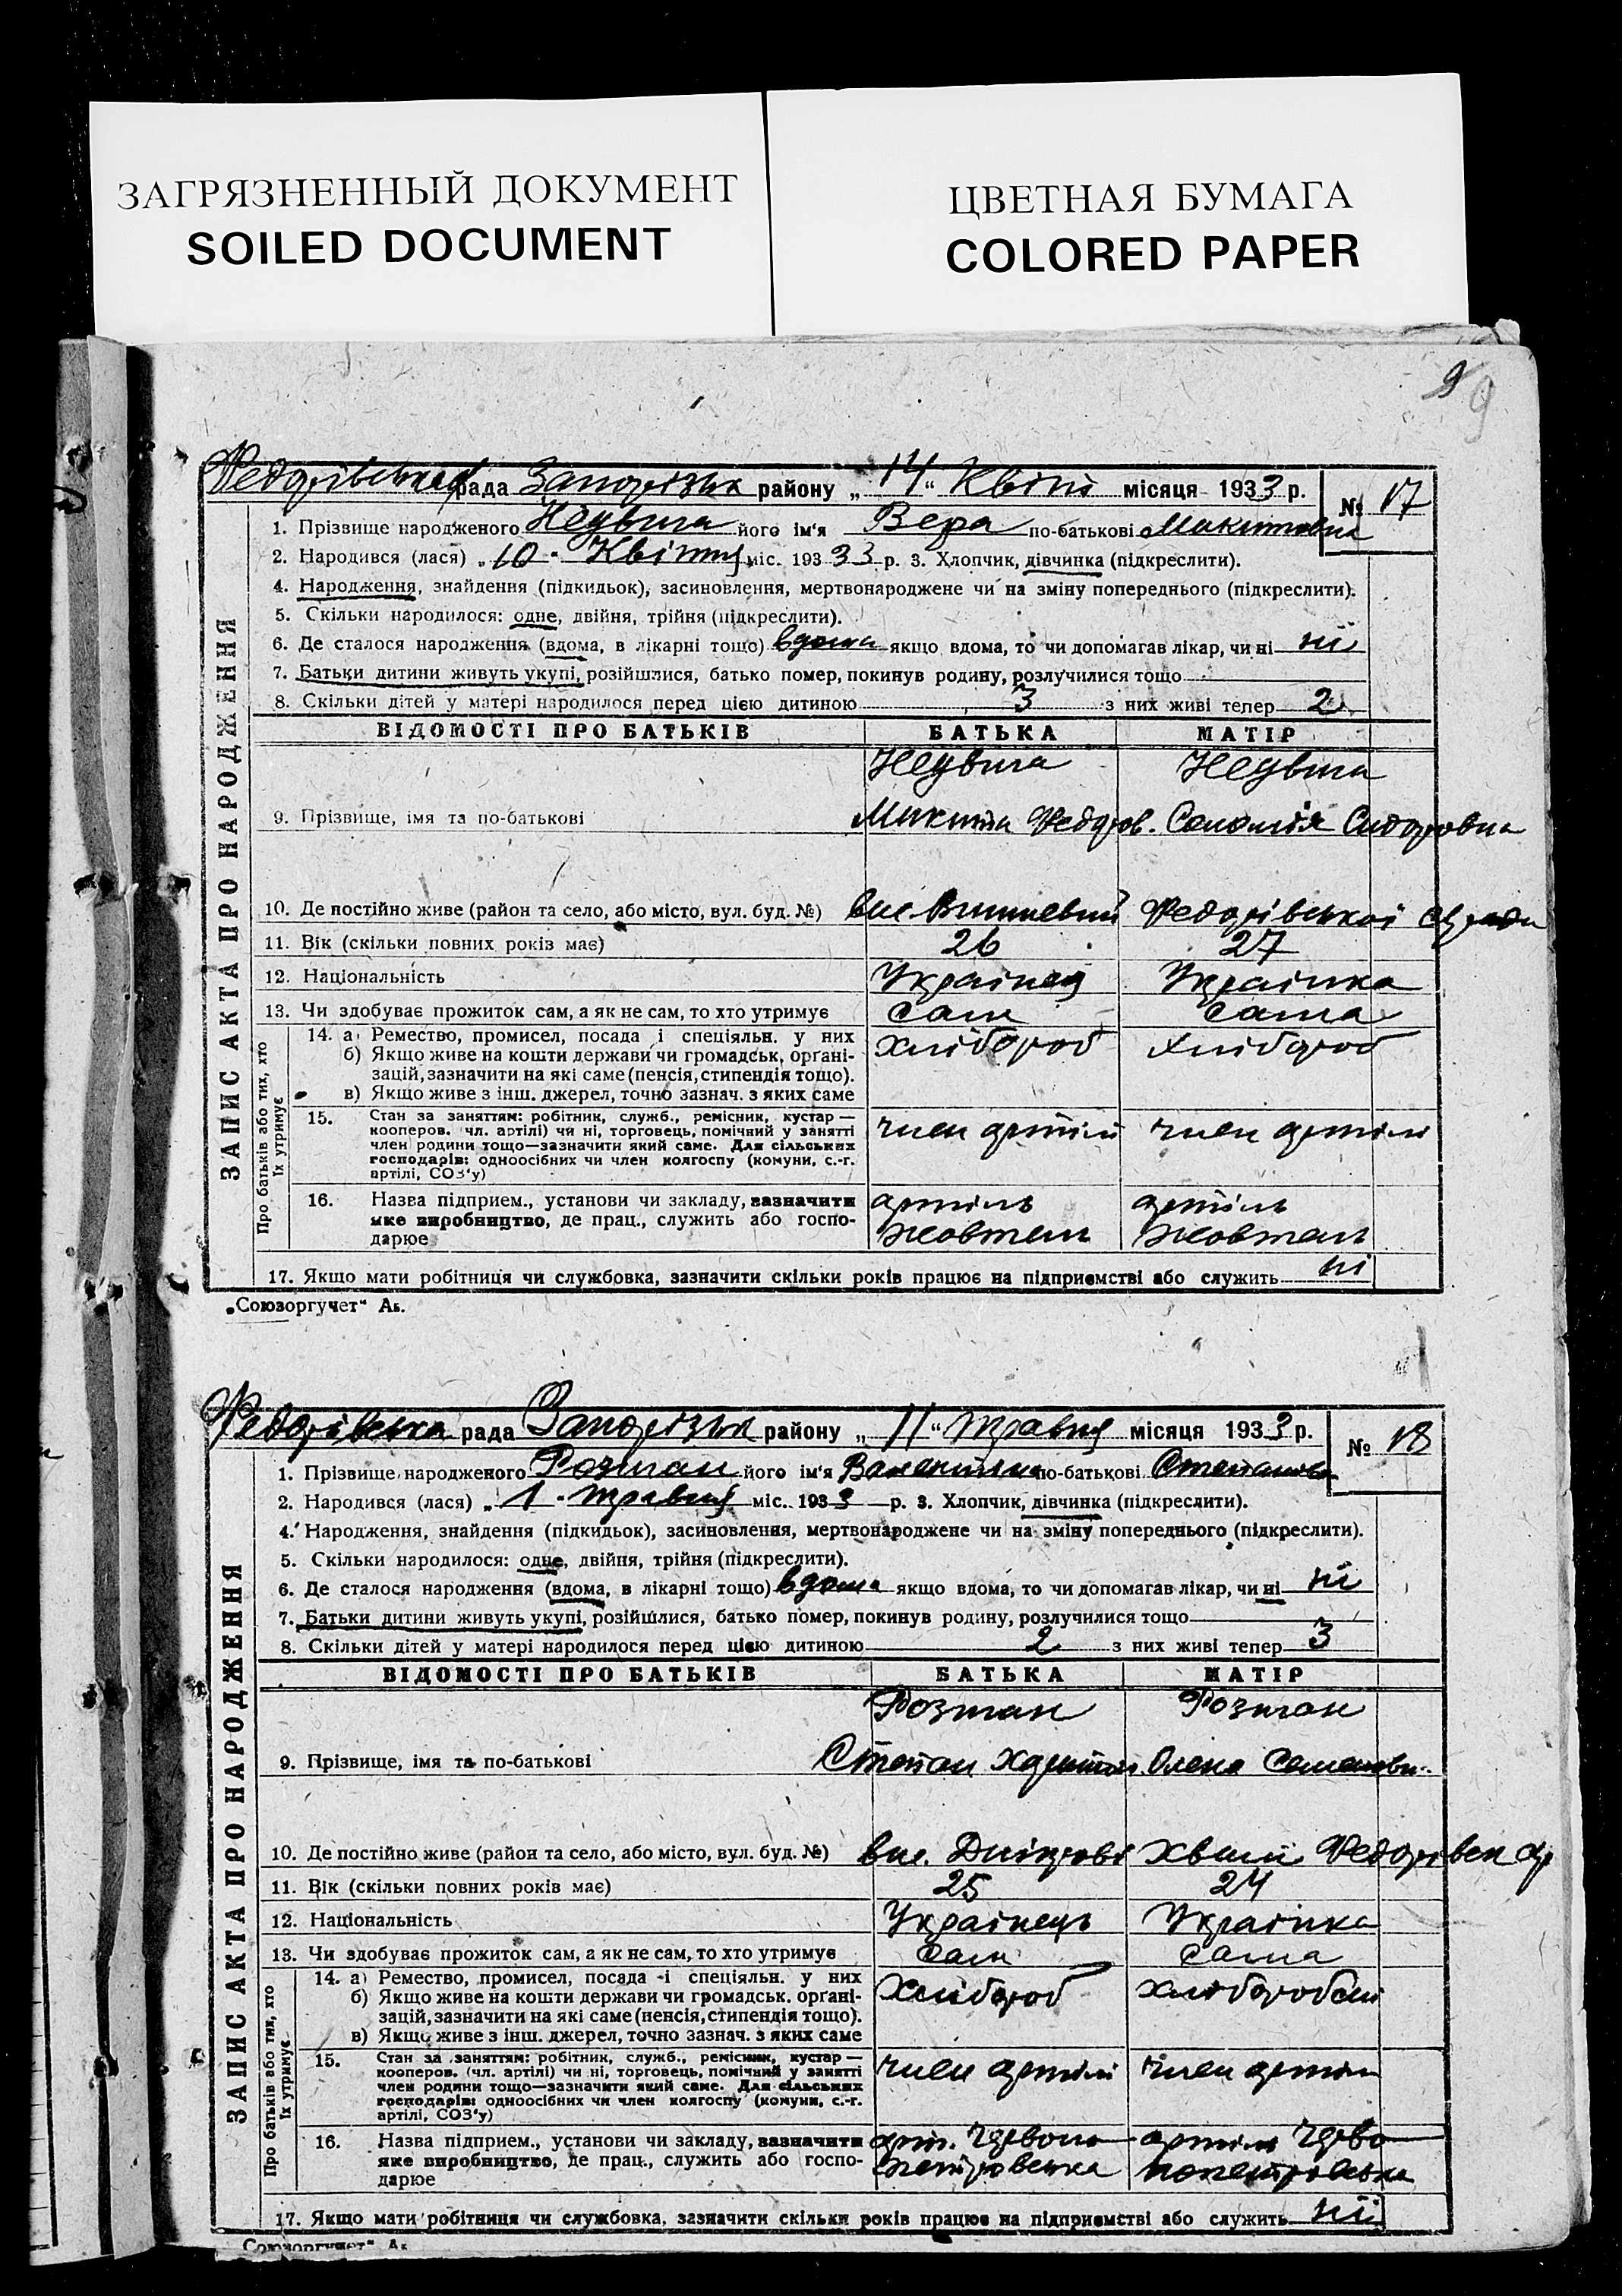 ЗАГРЯЗНЕННЫЙ ДОКУМЕНТ
SOILED DOCUMENT
ЦВЕТНАЯ БУМАГА
COLORED PAPER
9 9
Федорівська рада Запорізьк району „14“ Квітні місяця 1933 р. № 17
1. Прізвище народженого його ім'я Вера по-батькові Микитовна
2. Народився (лася) „10" Квітня міс. 193 33 р. 3. Хлопчик, дівчинка (підкреслити).
4. Народження, знайдення (підкидьок), засиновлення, мертвонароджене чи на зміну попереднього (підкреслити).
5. Скільки народилося: одне, двійня, трійня (підкреслити).
6. Де сталося народження (вдома, в лікарні тощо) вдома якщо вдома, то чи допомагав лікар, чи ні ні
7. Батьки дитини живуть укупі, розійшлися, батько помер, покинув родину, розлучилися тощо
8. Скільки дітей у матері народилося перед цією дитиною 3 з них живі тепер 2
ЗАПИС АКТА ПРО НАРОДЖЕННЯ
ВІДОМОСТІ ПРО БАТЬКІВ БАТЬКА МАТІР
9. Прізвище, імя та по-батькові Микита Федоров. Соломія Сидоровна
10. Де постійно живе (район та село, або місто, вул. буд. №) вис. Вишневий Федорівської с/ради
11. Вік (скільки повних років має) 26 27
12. Національність Українец Українка
13. Чи здобуває прожиток сам, а як не сам, то хто утримує сам сама
Про батьків або тих, хто їх утримує
14. а) Ремество, промисел, посада і спеціяльн. у них Хлібороб Хлібороб
б) Якщо живе на кошти держави чи громадськ. орґані-
зацій, зазначити на які саме (пенсія, стипендія тощо).
в) Якщо живе з інш. джерел, точно зазнач. з яких саме
15. Стан за заняттям: робітник, служб., ремісник, кустар —
кооперов. чл. артілі) чи ні, торговець, помічний у занятті
член родини тощо—зазначити який саме. Для сільських
господарів: одноосібних чи член колгоспу (комуни, с.-г.
артілі, СОЗ'у)
член артілі член артілі
16. Назва підприєм., установи чи закладу, зазначити
яке виробництво, де прац., служить або госпо-
дарює
артіль артіль
Жовтень Жовтень
17. Якщо мати робітниця чи службовка, зазначити скільки років працює на підприємстві або служить ні
„Союзоргучет“ Ак.
Федорівська рада Запорізьк району „11“ травня місяця 1933 р. № 18
1. Прізвище народженого Розман його ім'я Валентина по-батькові Степановн
2. Народився (лася) „1" травня міс. 1933 р. 3. Хлопчик, дівчинка (підкреслити).
4. Народження, знайдення (підкидьок), засиновлення, мертвонароджене чи на зміну попереднього (підкреслити).
5. Скільки народилося: одне, двійня, трійня (підкреслити).
6. Де сталося народження (вдома, в лікарні тощо) вдома якщо вдома, то чи допомагав лікар, чи ні ні
7. Батьки дитини живуть укупі, розійшлися, батько помер, покинув родину, розлучилися тощо
8. Скільки дітей у матері народилося перед цією дитиною 2 з них живі тепер 3
ЗАПИС АКТА ПРО НАРОДЖЕННЯ
ВІДОМОСТІ ПРО БАТЬКІВ БАТЬКА МАТІР
Розман Розман
9. Прізвище, імя та по-батькові Степан Олена
10. Де постійно живе (район та село, або місто, вул. буд. №) вис. Дніпрові Хвилі Федорівск с/р
11. Вік (скільки повних років має) 25 24
12. Національність Українець Українка
13. Чи здобуває прожиток сам, а як не сам, то хто утримує сам сама
Про батьків або тих, хто їх утримує
14. а) Ремество, промисел, посада і спеціяльн. у них Хлібороб
б) Якщо живе на кошти держави чи громадськ. орґані-
зацій, зазначити на які саме (пенсія, стипендія тощо).
в) Якщо живе з інш. джерел, точно зазнач. з яких саме
15. Стан за заняттям: робітник, служб., ремісник, кустар —
кооперов. (чл. артілі) чи ні, торговець, помічний у занятті
член родини тощо—зазначити який саме. Для сільських
господарів: одноосібних чи член колгоспу (комуни, с.-г.
артілі, СОЗ'у)
член артілі член артіли
16. Назва підприєм., установи чи закладу, зазначити
яке виробництво, де прац., служить або госпо-
дарює
арт. Червоно артіль Черво
петровська нопетровська
17. Якщо мати робітниця чи службовка, зазначити скільки років працює на підприємстві або служить ні
Союзоргучет“ Ак